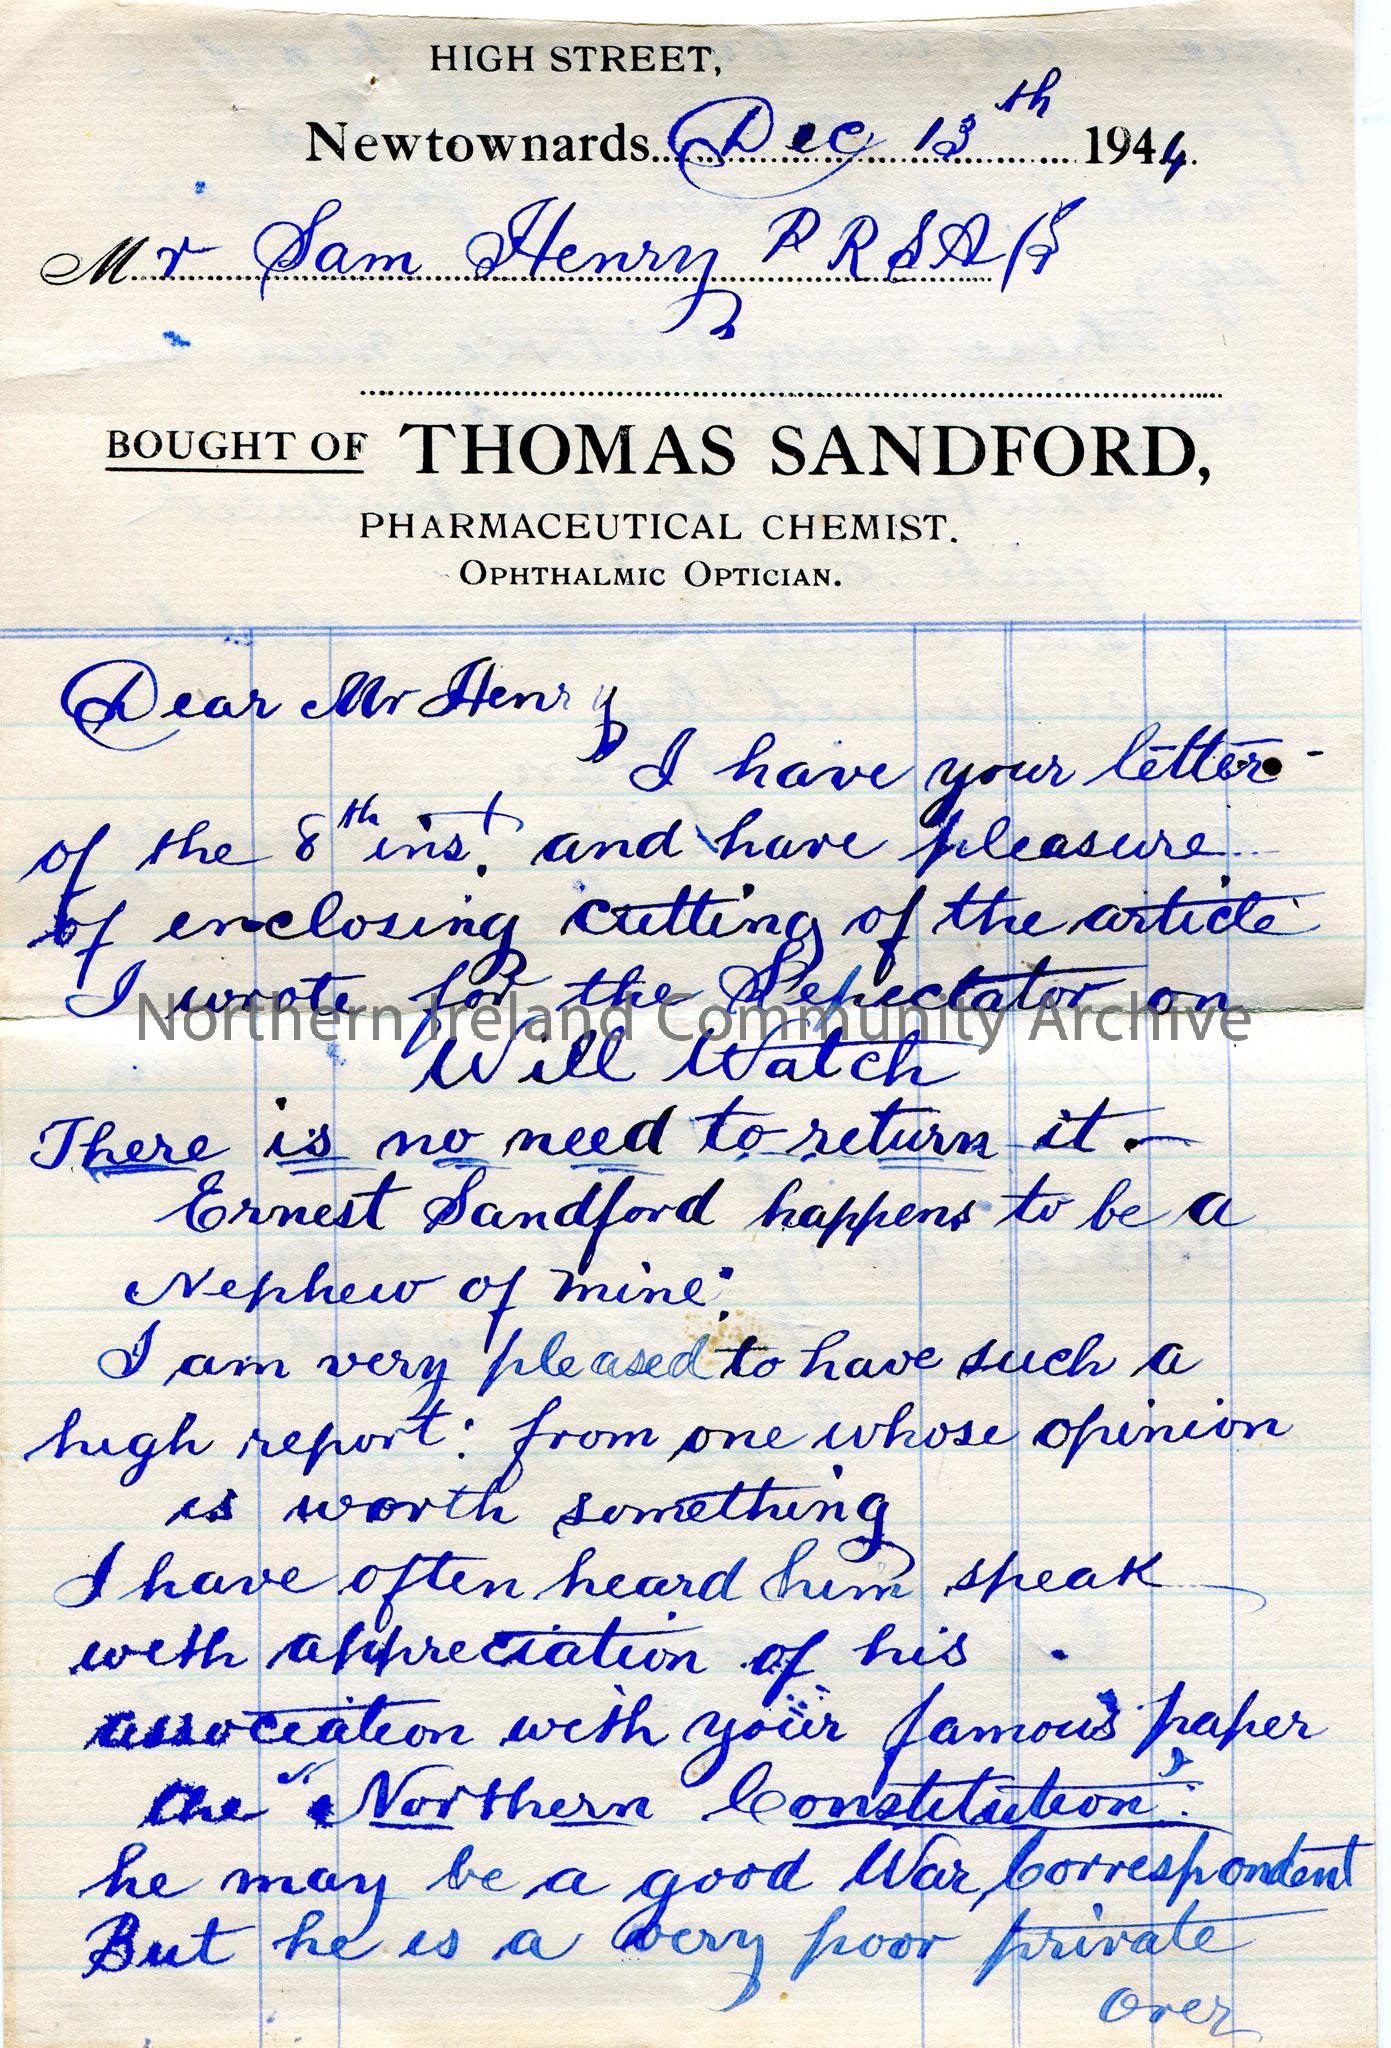 HIGH STREET,
Newtownards. Dec 13th 1944.
Mr Sam Henry
BOUGHT OF THOMAS SANDFORD,
PHARMACEUTICAL CHEMIST.
OPHTHALMIC OPTICIAN.
Dear Mr Henry
I have your letter -
of the 8th inst. and have pleasure
of enclosing cutting of the article
I wrote for the Spectator on
Northern Ireland Community Archive
Will Watch
There is no need to return it. -
Ernest Sandford happens to be a
Nephew of mine:
I am very pleased to have such a
high report: from one whose opinion
is worth something
I have often heard him speak
with appreciation of his
association with your famous paper
the "Northern Constitution":
he may be a good War Correspondent
But he is a very poor private
over